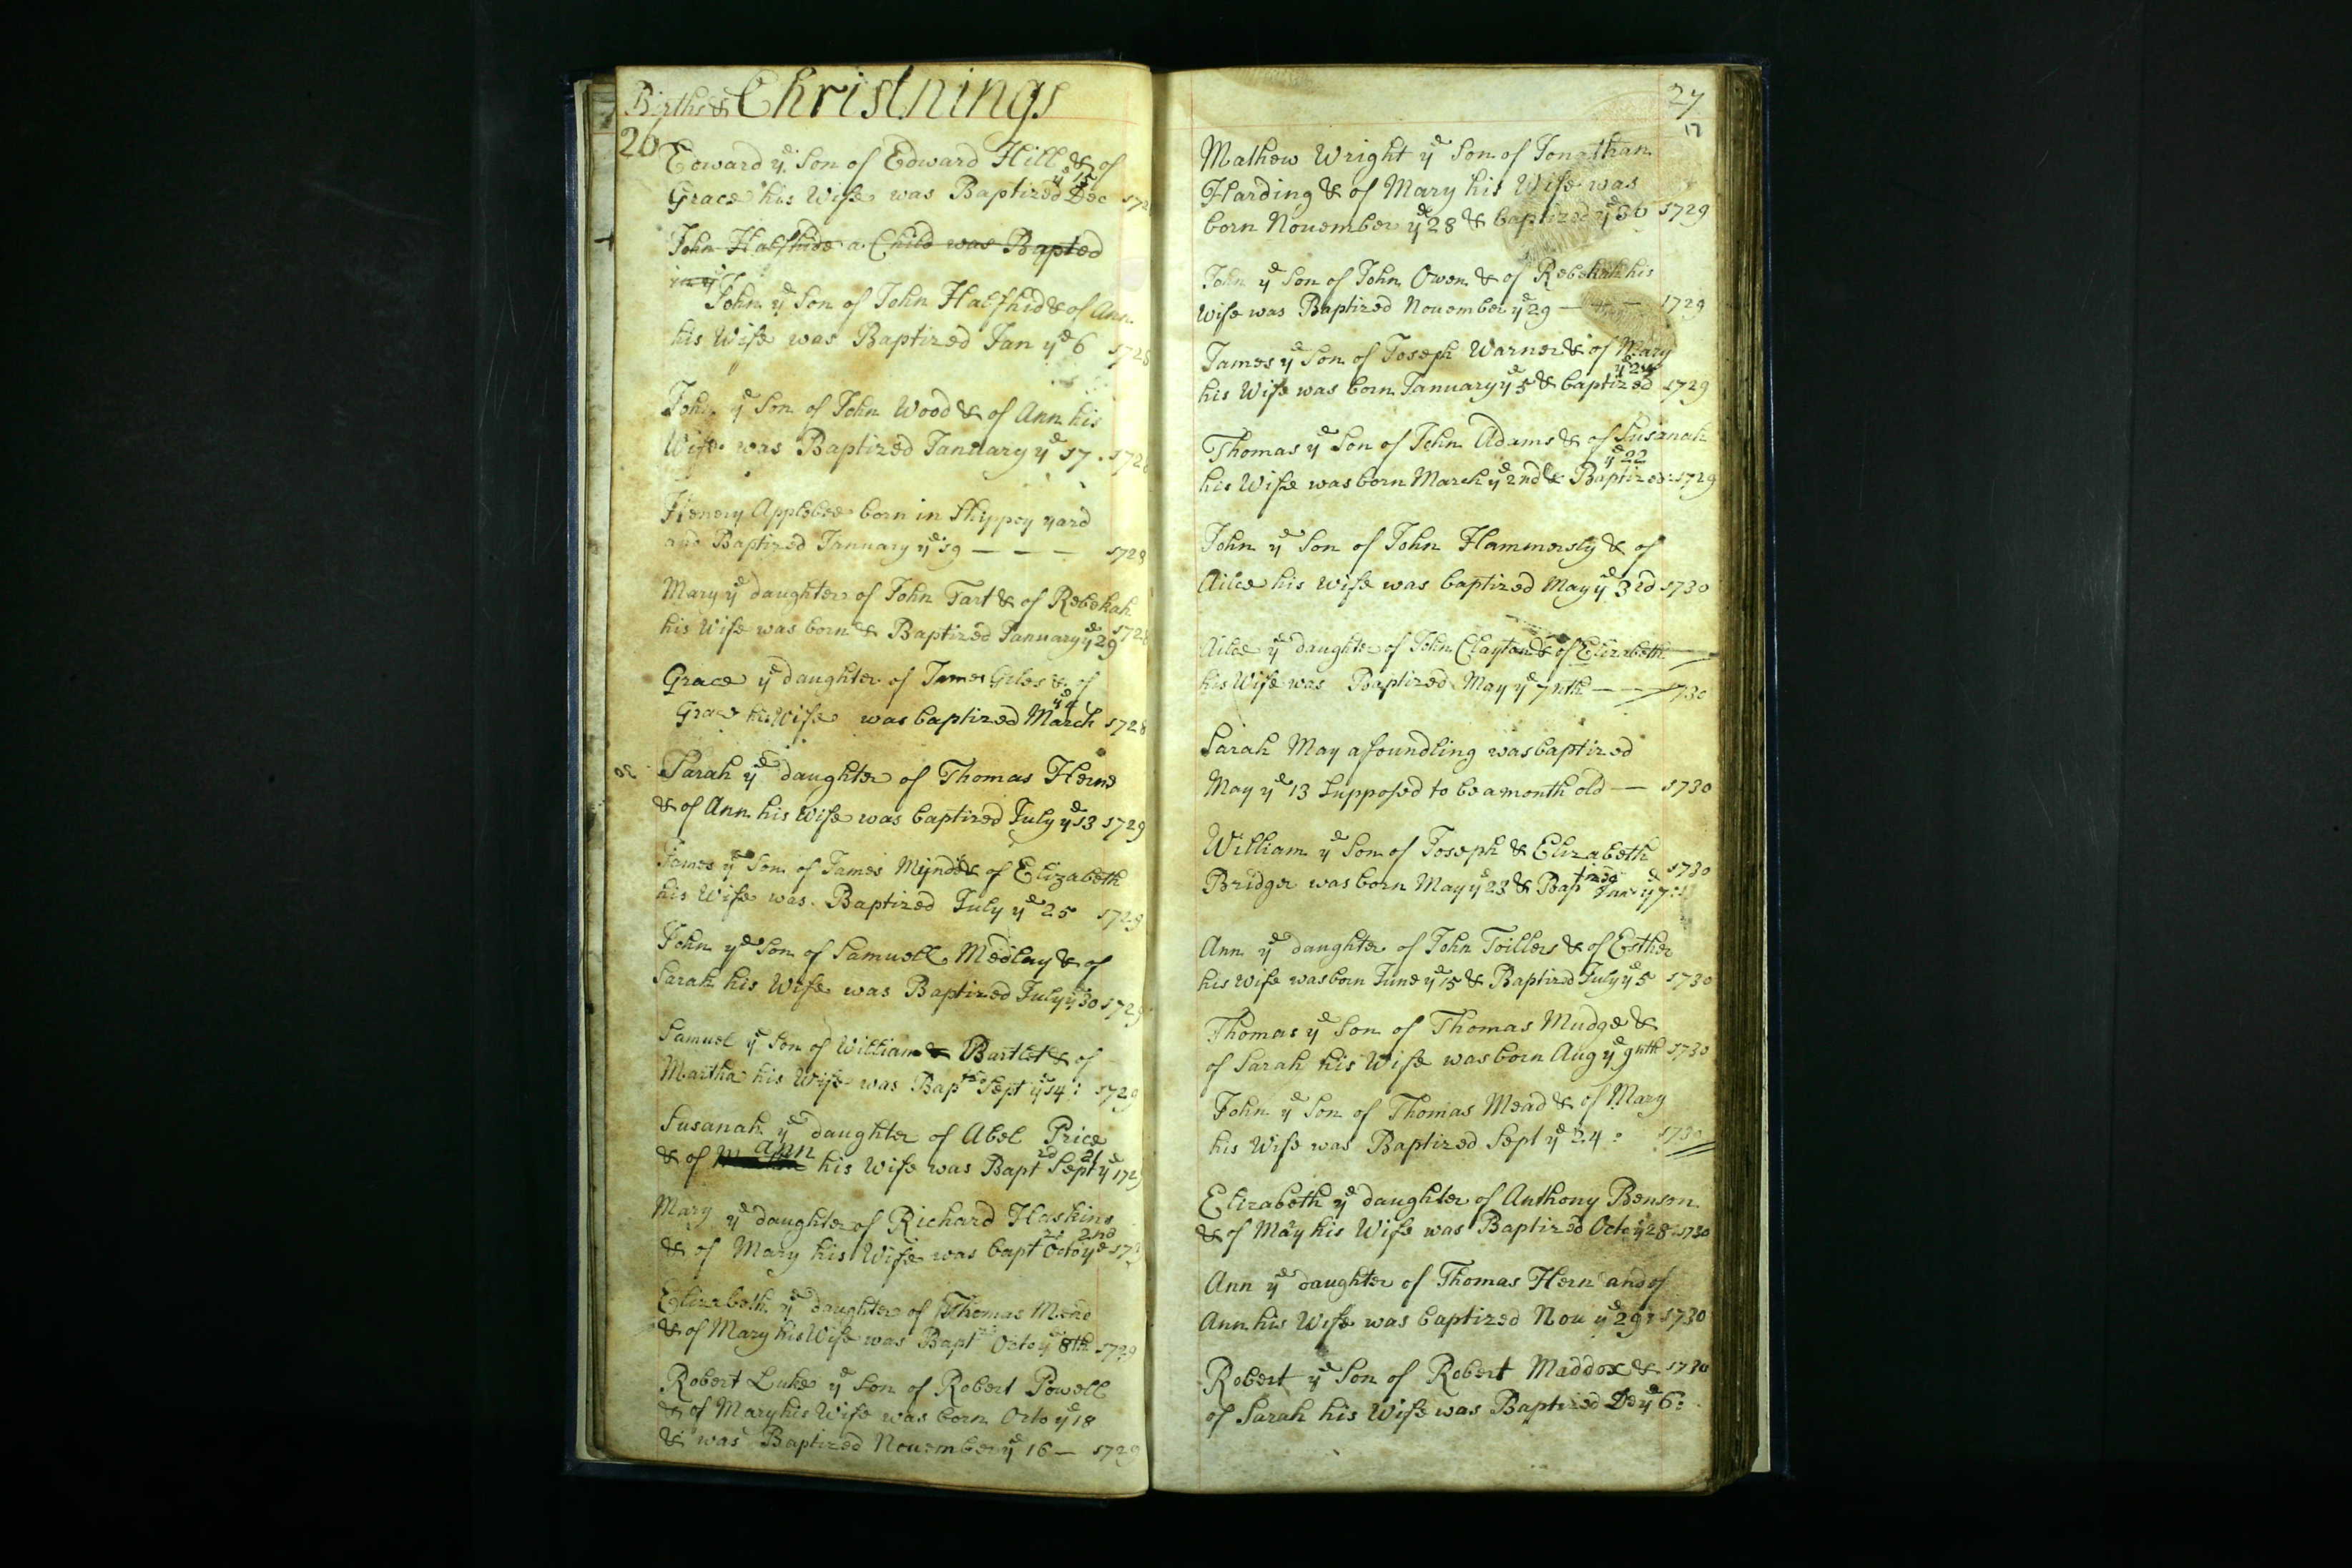 Births & Christnings
26
Edward ye Son of Edward Hill & of
Grace his Wife was Baptized Dec ye 15 172
John Halfhide a Child was Bapted
in ye
John ye Son of John Halfhid & of Ann
his Wife was Baptized Jan ye 6 1728
John ye Son of John Wood & of Ann his
Wife was Baptized January ye 17 . 172
Henery Applebee born in Shippey yard
and Baptized January ye 19 — — — 1728
Mary ye daughter of John Tart & of Rebekah
his Wife was born & Baptized January ye 29 1728
Grace ye daughter of James Giles & of
Grace his Wife was baptized March ye 4 1728
Sarah ye daughter of Thomas Herne
& of Ann his Wife was baptized July ye 13 1729
James ye Son of James Mynde & of Elizabeth
his Wife was Baptized July ye 25 1729
John ye Son of Samuell Medlay & of
Sarah his Wife was Baptized July ye 30 1729
Samuel ye Son of William & Bartlet & of
Martha his Wife was Bap Sept ye 14 : 1729
Susanah ye daughter of Abel Price
& of Ann his Wife was Bapt Sept ye 21 1729
Mary ye daughter of Richard Haskins
& of Mary his Wife was bapt Octo ye 2nd 172
Elizabeth ye daughter of Thomas Mead
& of Mary his Wife was Bapt Octo ye 8th 1729
Robert Luke ye Son of Robert Powell
& of Mary his Wife was born Octo ye 18
& was Baptized November ye 16 — 1729
27
17
Mathew Wright ye Son of Jonathan
Harding & of Mary his Wife was
born November ye 28 & baptized ye 30 1729
John ye Son of John Owen & of Rebekah his
Wife was Baptized November ye 29 — — — 1729
James ye Son of Joseph Warner & of Mary
his Wife was born January ye 5 & baptized ye 24 1729
Thomas ye Son of John Adams & of Susanah
his Wife was born March ye 2nd & Baptized ye 22 : 1729
John ye Son of John Hammersly & of
Ailce his Wife was baptized May ye 3rd 1730
Ailce ye daughter of John Clayton & of Elizabeth —
his Wife was Baptized May ye 7nth — — 1730
Sarah May a foundling was baptized
May ye 13 Supposed to be a month old — 1730
William ye Son of Joseph & Elizabeth
Bridger was born May ye 23 & Baptized June ye 7 : 1730
Ann ye daughter of John Toillers & of Esther
his Wife was born June ye 15 & Baptized July ye 5 1730
Thomas ye Son of Thomas Mudge &
of Sarah his Wife was born Aug ye 9nth 1730
John ye Son of Thomas Mead & of Mary
his Wife was Baptized Sept ye 24 : 1730
Elizabeth ye daughter of Anthony Benson
& of Mary his Wife was Baptized Octo ye 28 : 1730
Ann ye daughter of Thomas Hern and of
Ann his Wife was baptized Nou ye 29 : 1730
Robert ye Son of Robert Maddox & 1730
of Sarah his Wife was Baptized De ye 6 :